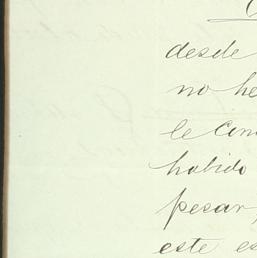 desde
no he
le com
habido
pesar,
este es